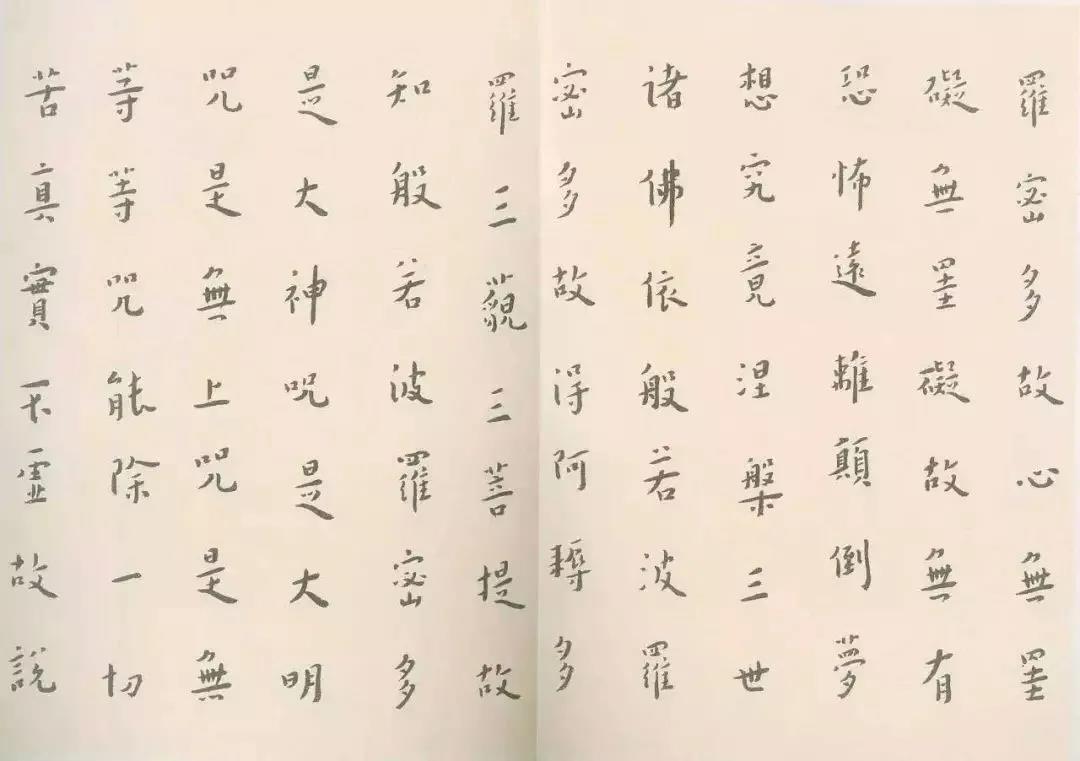 羅密多故心無罣
礙無罣礙故無有
恐怖遠離顛倒夢
想究竟涅槃三世
諸佛依般若波羅
密多故得阿耨多
羅三藐三菩提故
知般若波羅密多
是大神呪是大明
咒是無上咒是無
等等咒能除一切
苦真實不虛故說